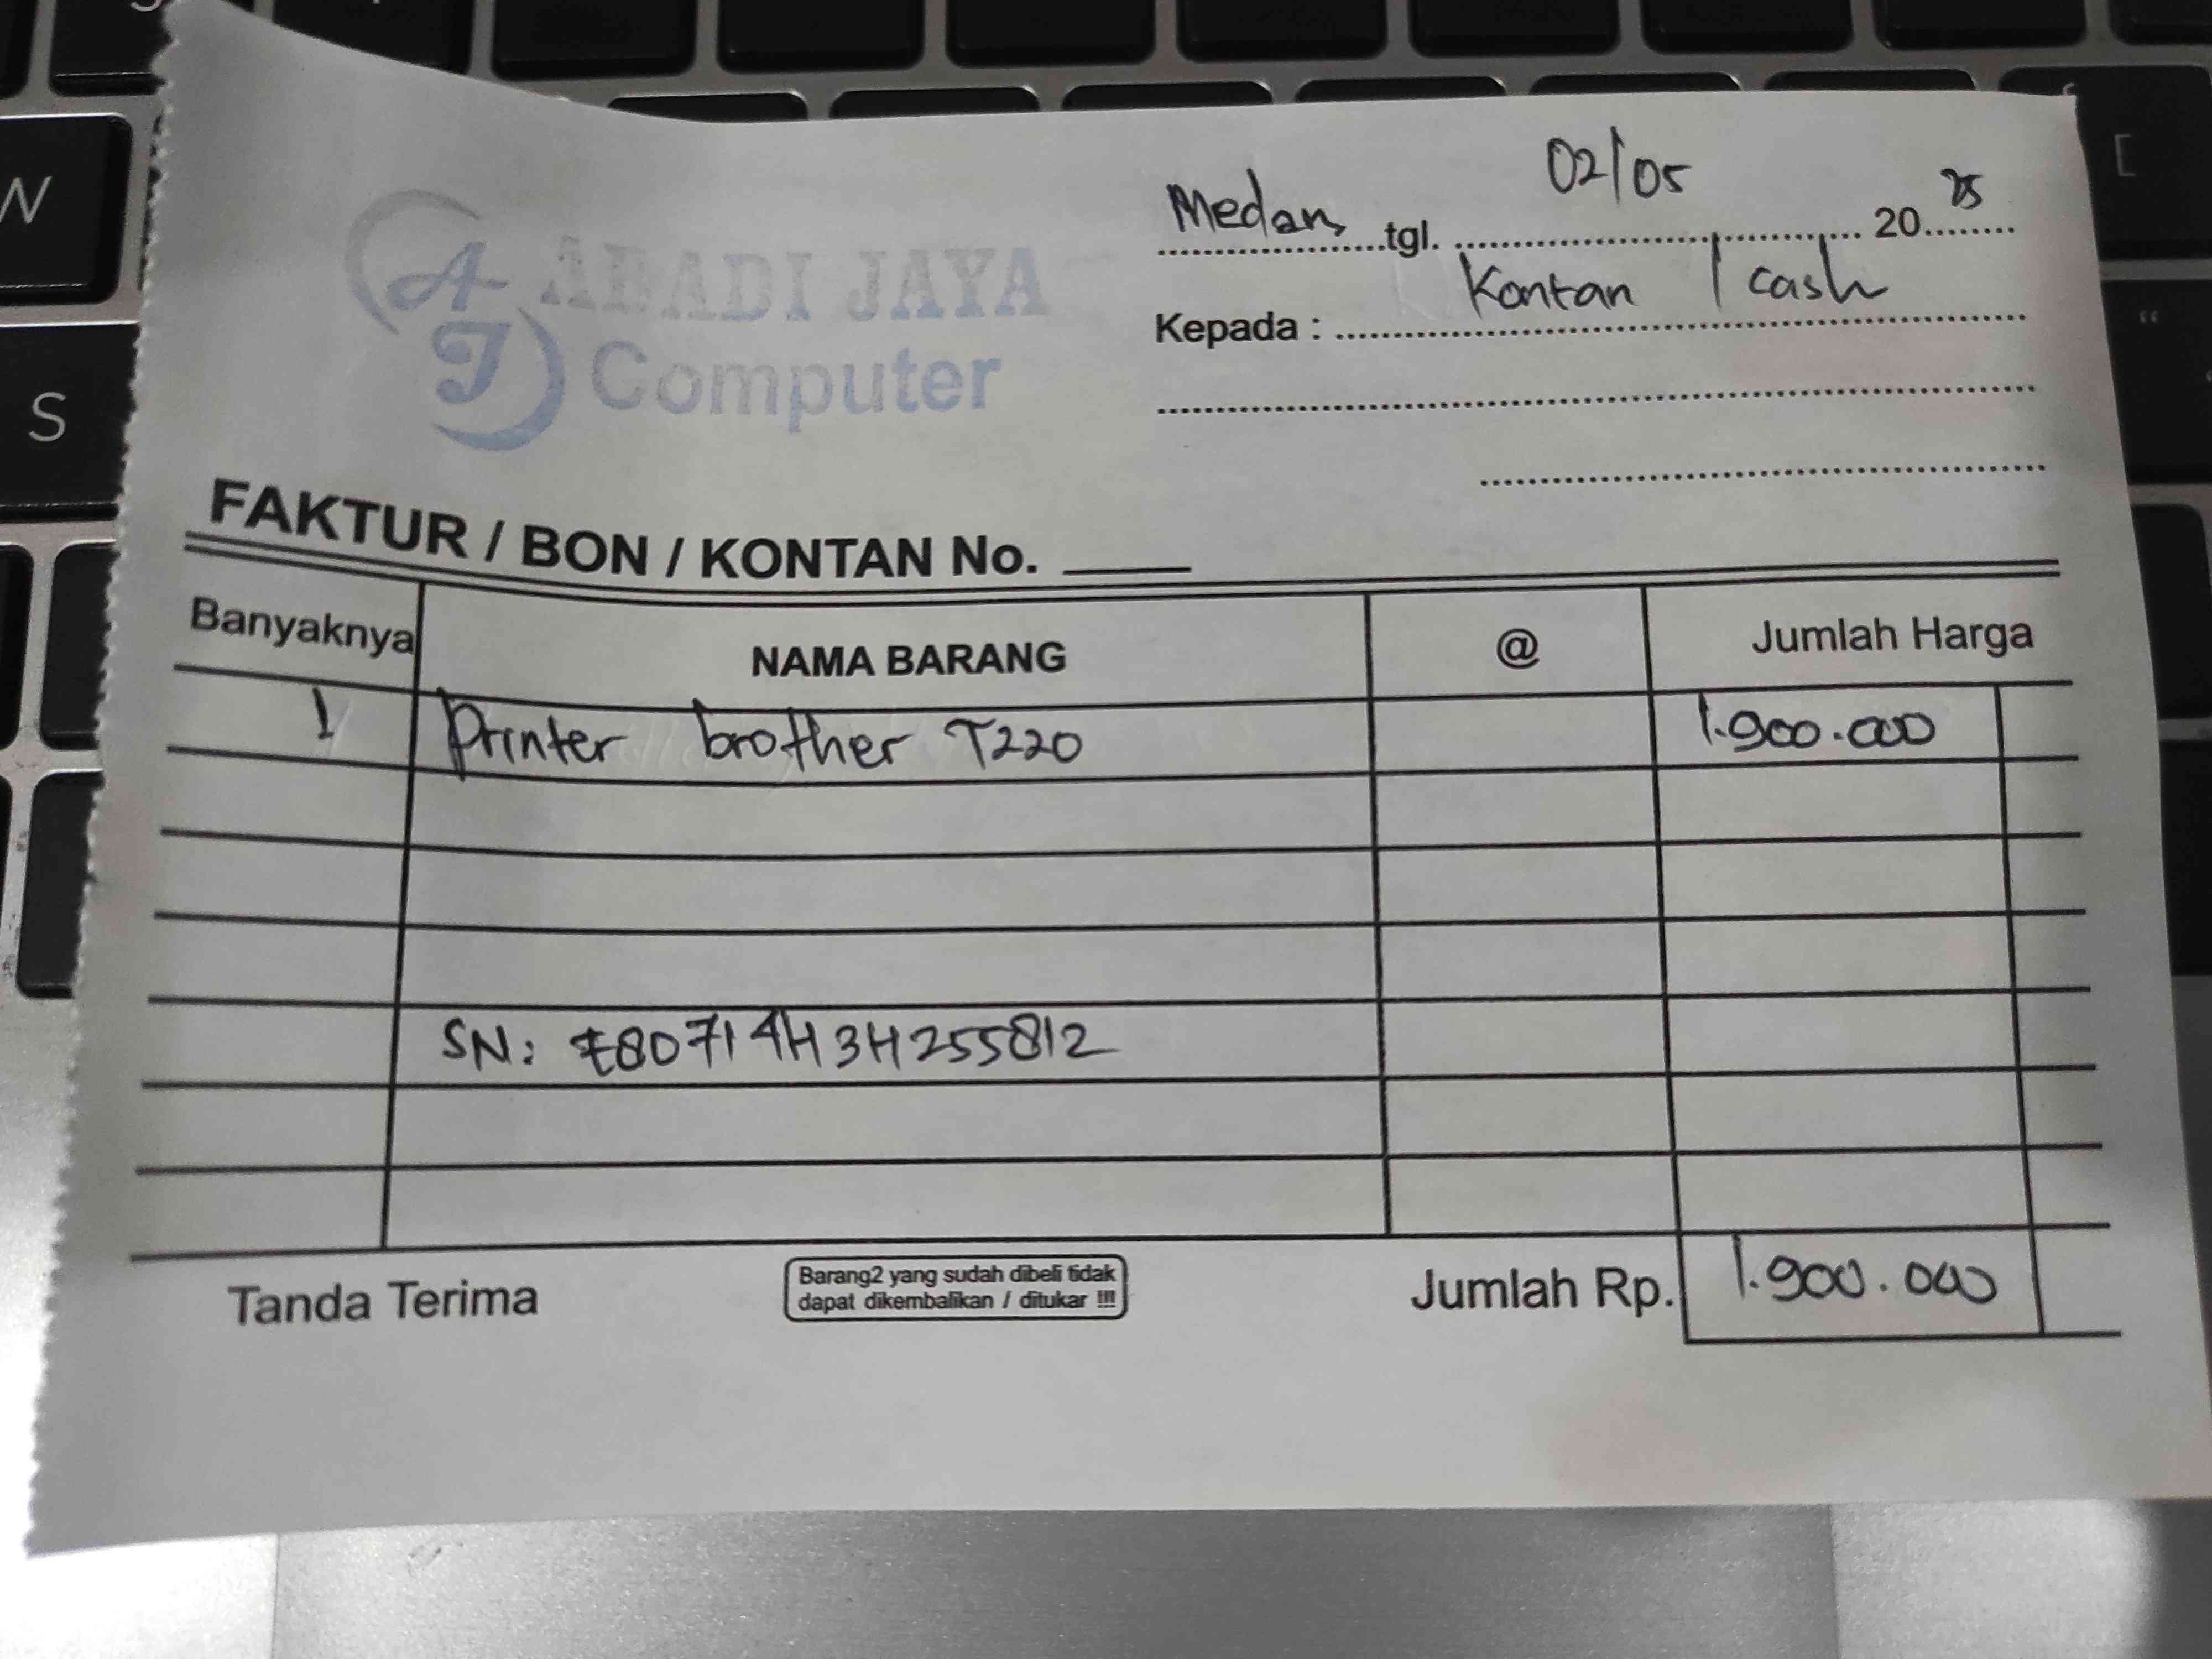 Medan, tgl. 02/05 2025
Kepada : Kontan / cash
ABADI JAYA
AJ Computer
FAKTUR / BON / KONTAN No.
Banyaknya NAMA BARANG @ Jumlah Harga
1 Printer brother T220 1.900.000
SN: E80714H3H255812
Tanda Terima Barang2 yang sudah dibeli tidak Jumlah Rp. 1.900.000
dapat dikembalikan / ditukar !!!
W
S
[